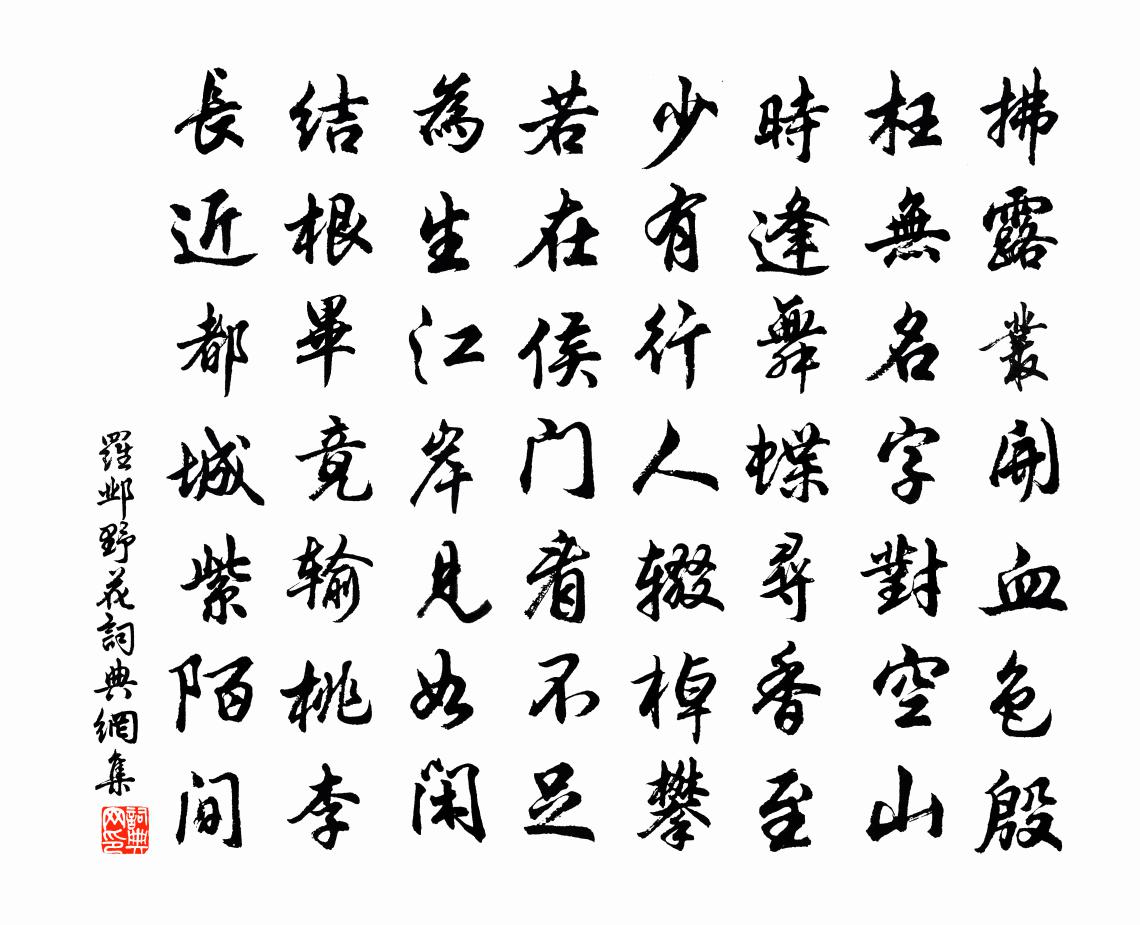 拂露叢開血色殷
枉無名字對空山
時逢舞蝶尋香至
少有行人辍棹攀
若在侯门看不足
為生江岸見如闲
结根畢竟输桃李
長近都城紫陌间
羅邺野花詞典網集
詞典网印